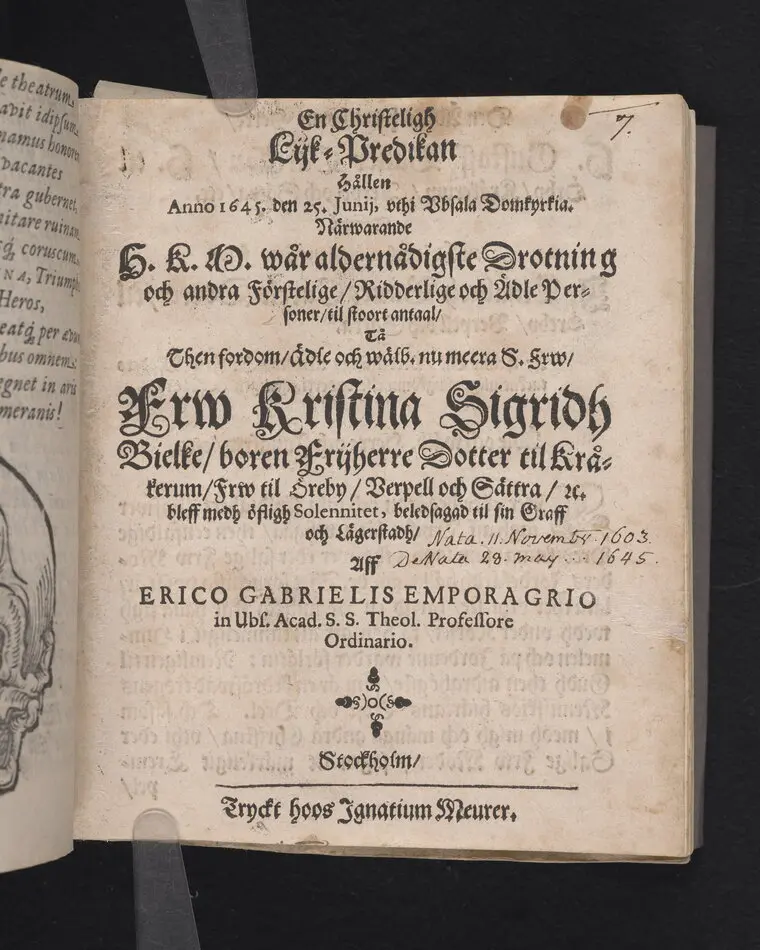 e theatrum
avit idipsum
namus honore
vacantes
tra gubernet,
nitare ruinam
sq́, coruscum,
NA, Triumph
Heros,
eatq́ per ævum
bus omnem:
egnet in aris
meranis!
7.
En Christeligh
Lijk-Predikan
Hållen
Anno 1645. den 25. Junij, vthi Vbsala Domkyrkia.
Närwarande
H. K. M. wår aldernådigste Drotning
och andra Förstelige/ Ridderlige och Ädle Per-
soner/ til stoort antaal/
Tå
Then fordom/ Ädle och wälb. nu meera S. Frw/
Frw Kristina Sigridh
Bielke/ boren Frijherre Dotter til Krå-
kerum/ Frw til Öreby/ Verpell och Sättra/ ꝛc.
bleff medh öfligh Solennitet, beledsagad til sin Graff
och Lägerstadh/ Nata. 11. Novembr. 1603.
Aff DeNata 28. may... 1645.
ERICO GABRIELIS EMPORAGRIO
in Ubſ. Acad. S. S. Theol. Profeſſore
Ordinario.
Stockholm/
Tryckt hoos Ignatium Meurer.